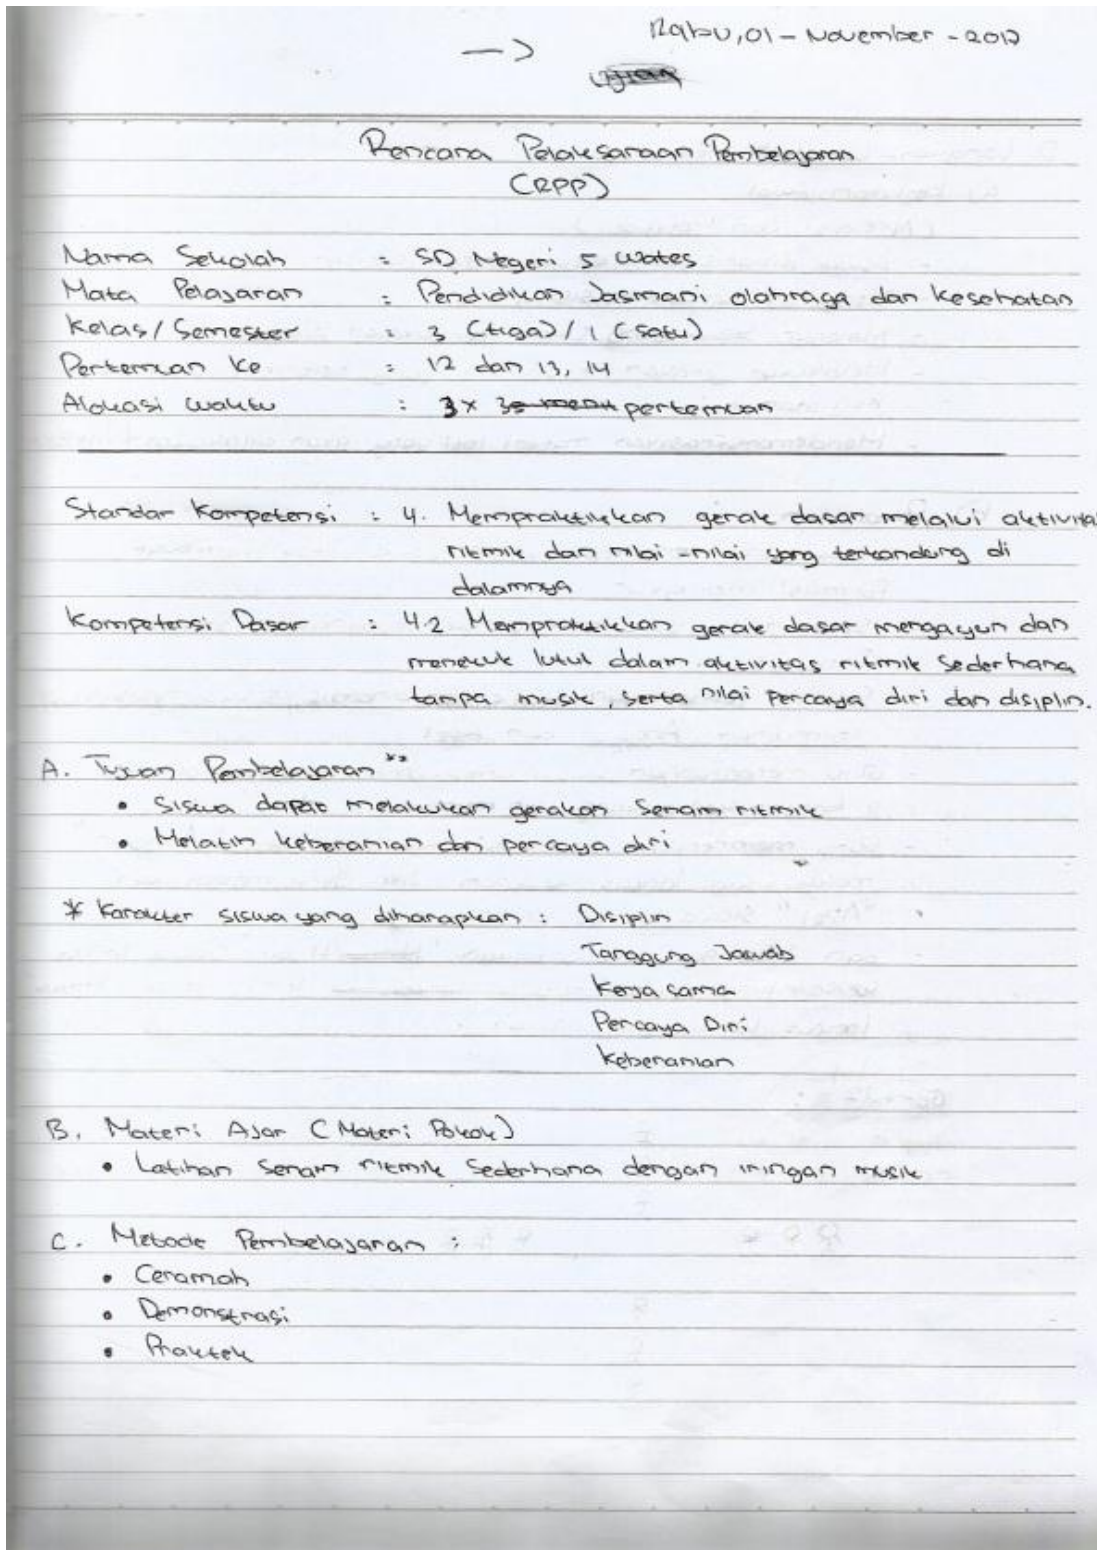 Rabu, 01 - November - 2017
->
Rencana Pelaksanaan Pembelajaran
(RPP)
Nama Sekolah : SD Negeri 5 Wates
Mata Pelajaran : Pendidikan Jasmani olahraga dan Kesehatan
Kelas/Semester : 3 (tiga) / 1 (satu)
Pertemuan Ke : 12 dan 13, 14
Alokasi Waktu : 3 x pertemuan
Standar Kompetensi : 4. Mempraktikkan gerak dasar melalui aktivitas
ritmik dan nilai-nilai yang terkandung di
dalamnya
Kompetensi Dasar : 4.2 Mempraktikkan gerak dasar mengayun dan
menekuk lutut dalam aktivitas ritmik sederhana
tampa musik, serta nilai percaya diri dan disiplin.
A. Tujuan Pembelajaran **
• Siswa dapat melakukan gerakan Senam ritmik
• Melatih keberanian dan percaya diri
* Karakter siswa yang diharapkan : Disiplin
Tanggung Jawab
Kerja sama
Percaya Diri
Keberanian
B. Materi Ajar (Materi Pokok)
• Latihan Senam ritmik Sederhana dengan iringan musik
C. Metode Pembelajaran :
• Ceramah
• Demonstrasi
• Praktek